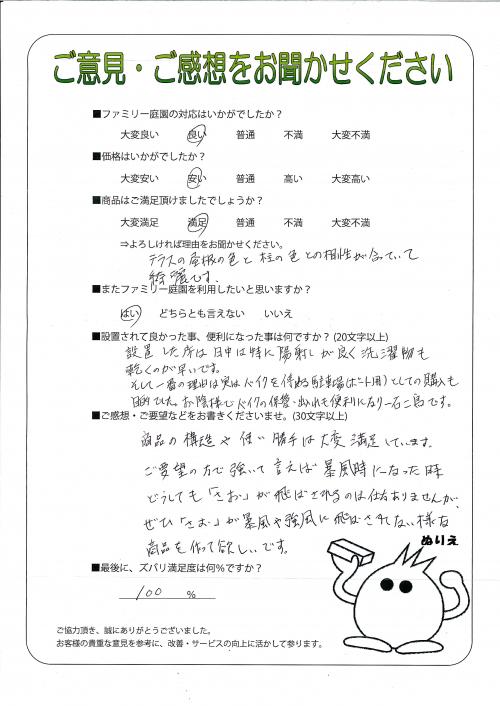 ご意見・ご感想をお聞かせください
■ファミリー庭園の対応はいかがでしたか？
大変良い 良い 普通 不満 大変不満
■価格はいかがでしたか？
大変安い 安い 普通 高い 大変高い
■商品はご満足頂けましたでしょうか？
大変満足 満足 普通 不満 大変不満
⇒よろしければ理由をお聞かせください。
テラスの屋根の色と柱の色との相性が合っていて
綺麗です。
■またファミリー庭園を利用したいと思いますか？
はい どちらとも言えない いいえ
■設置されて良かった事、便利になった事は何ですか？(20文字以上)
設置した所は日中は特に陽射しが良く洗濯物も
乾くのが早いです。
そして一番の理由は実はバイクを停める駐車場(ポート用)としての購入も
目的でした。お陰様でバイクの保管・出し入れも便利になり一石二鳥です。
■ご感想・ご要望などをお書きくださいませ。(30文字以上)
商品の構造や使い勝手は大変満足しています。
ご要望の方で強いて言えば暴風時になった時
どうしても「さお」が飛ばされるのは仕方ありませんが、
ぜひ「さお」が暴風や強風に飛ばされない様な
商品を作って欲しいです。
ぬりえ
■最後に、ズバリ満足度は何％ですか？
100 ％
ご協力頂き、誠にありがとうございました。
お客様の貴重な意見を参考に、改善・サービスの向上に活かして参ります。